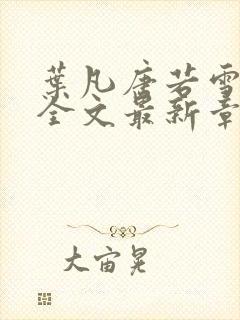 葉凡唐若雪
全文最新章
大宙晃